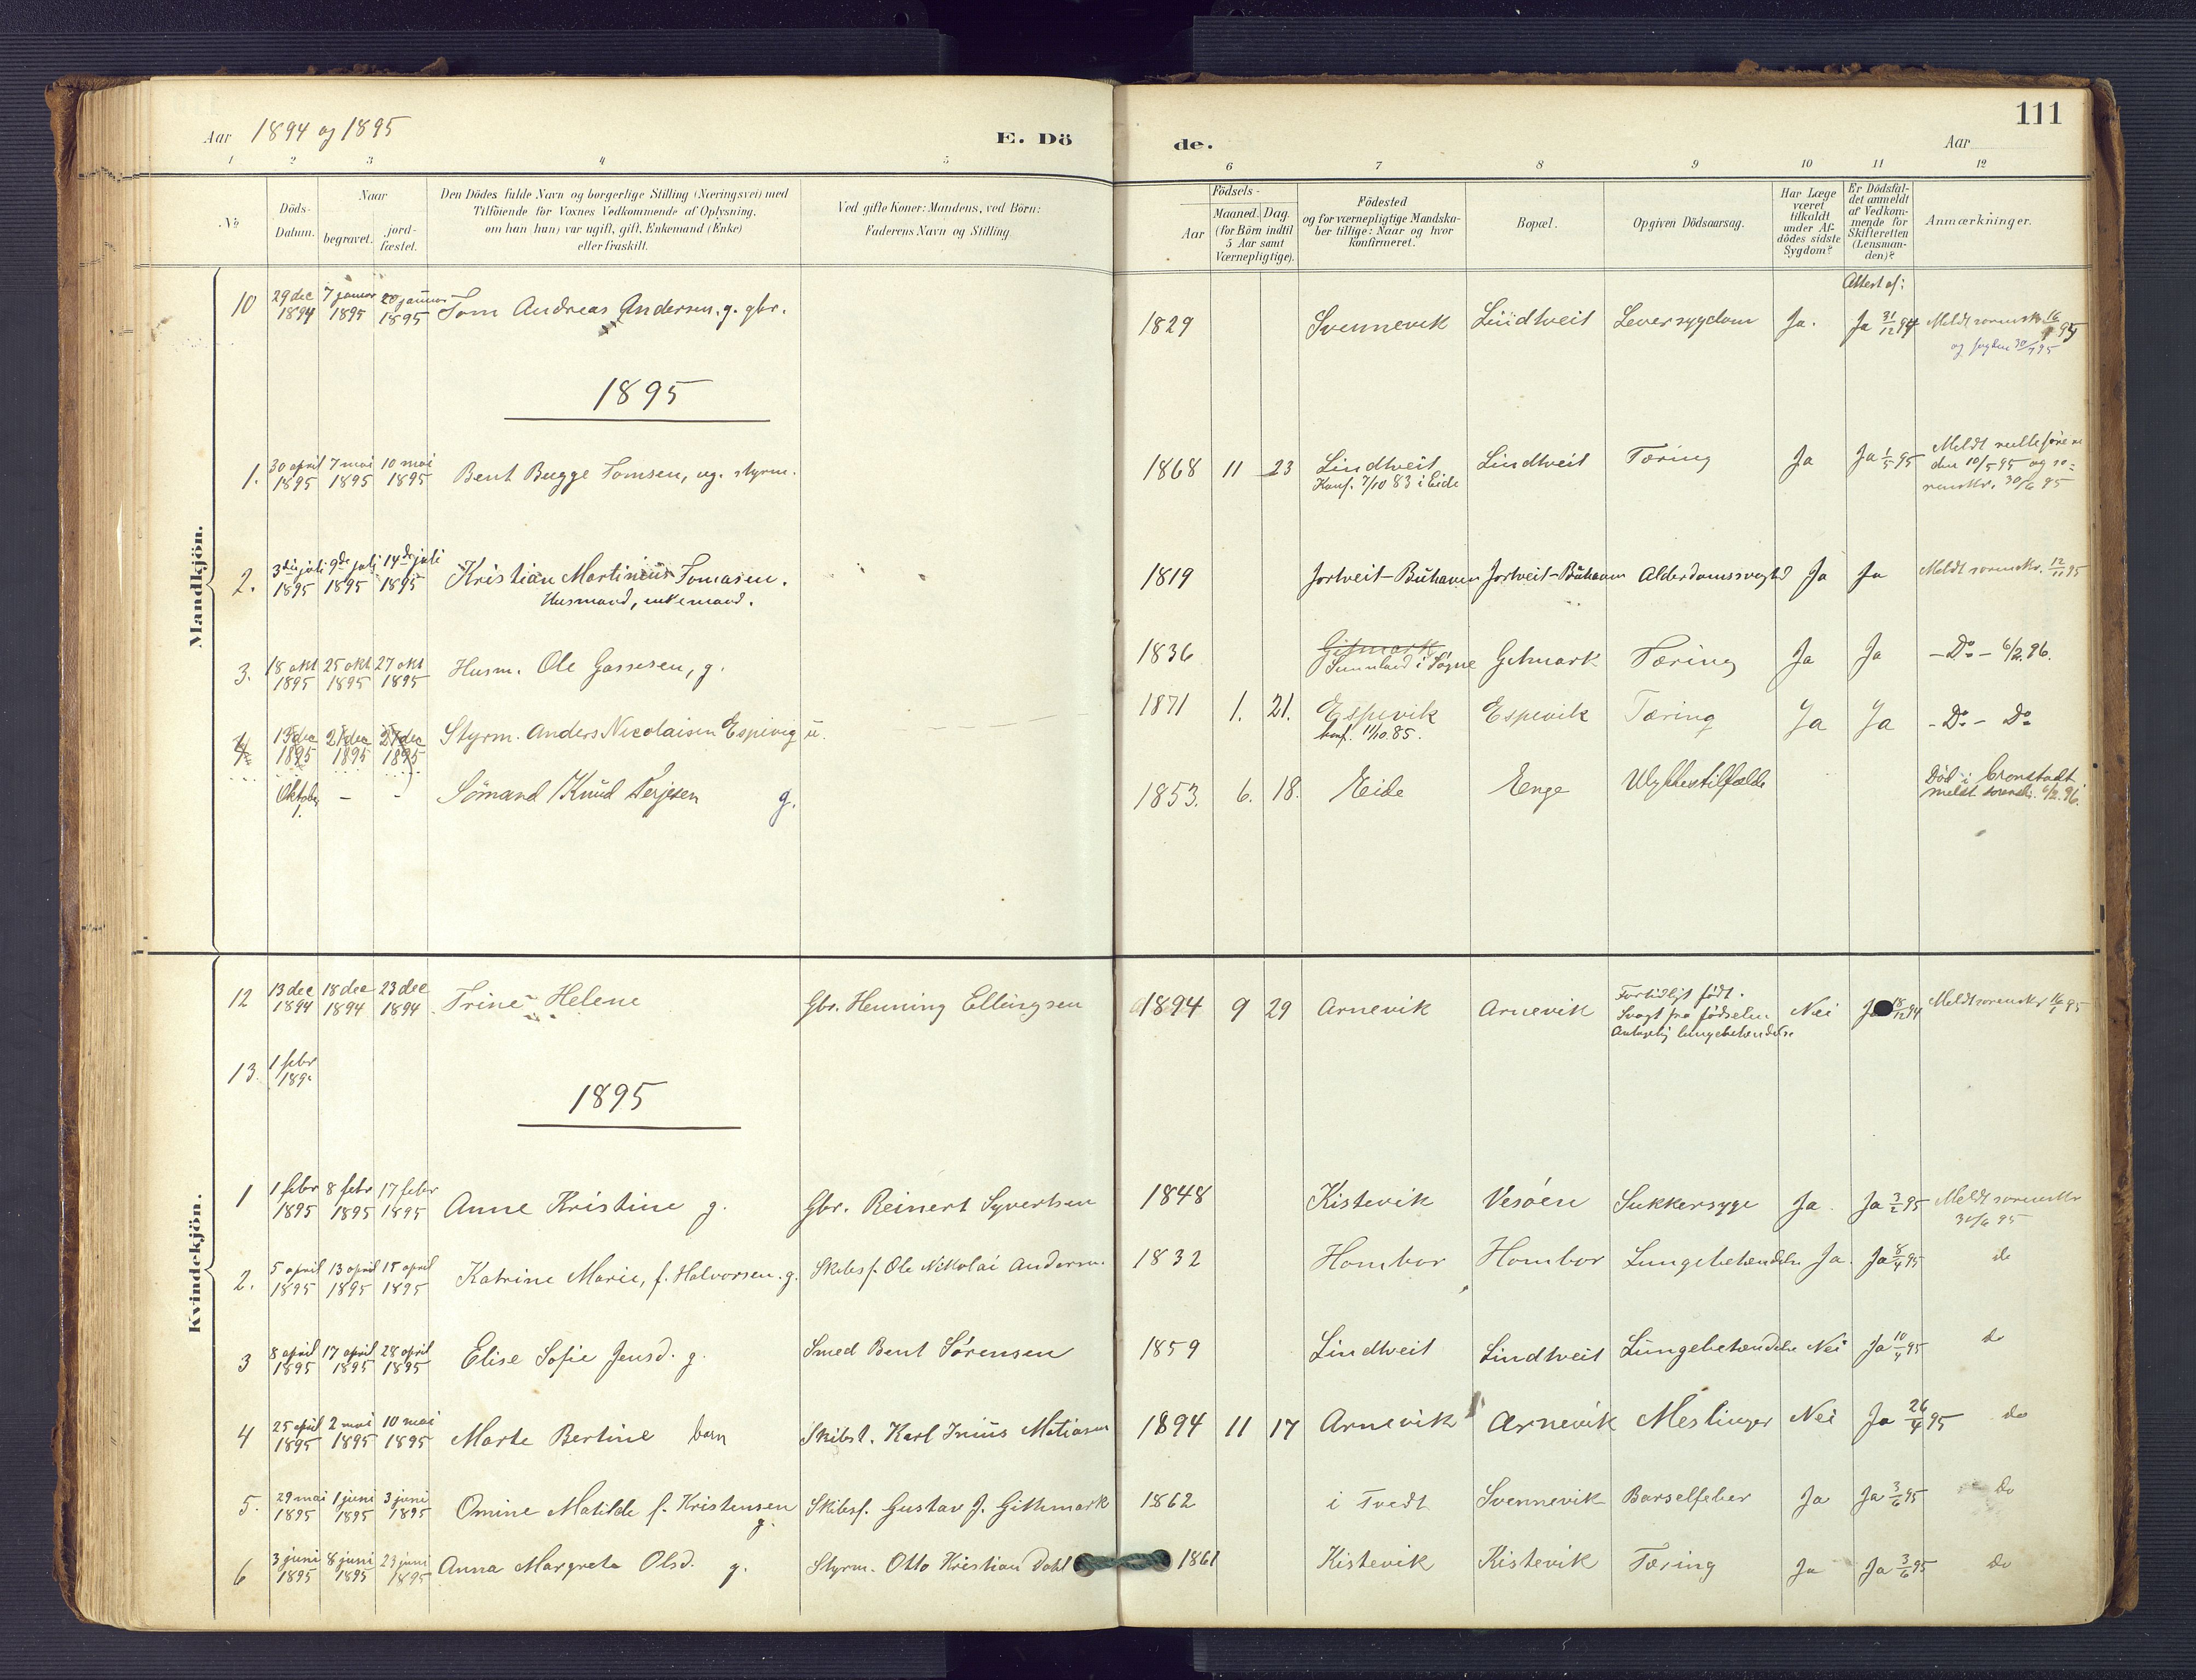 Aar 1894 og 1895
E. Döde.
Aar
111
1 2 3 4 5 6 7 8 9 10 11 12
No
Döds-Datum.
Naar
begravet.
jord-fæstet.
Den Dödes fulde Navn og borgerlige Stilling (Næringsvei) med
Tilföiende for Voxnes Vedkommende af Oplysning.
om han (hun) var ugift, gift, Enkemand (Enke)
eller fraskilt.
Ved gifte Koner: Mandens, ved Börn:
Faderens Navn og Stilling.
Födsels-
Aar
Maaned. Dag.
(for Börn indtil
5 Aar samt
Værnepligtige).
Födested
og for værnepligtige Mandska-
ber tillige: Naar og hvor
konfirmeret.
Bopæl.
Opgiven Dödsaarsag.
Har Læge
været
tilkaldt
under Af-
dödes sidste
Sygdom?
Er Dödsfal-
det anmeldt
af Vedkom-
mende for
Skifteretten
(Lensman-
den)?
Anmærkninger.
Mandkjön.
Attest af:
10 29 dec 1894 7 januar 1895 20 januar 1895 Tom Andreas Andersen. g. gbr. 1829 Svennevik Lindtveit Leversygdom Ja. Ja 31/12 94 Meldt sorenskr 16/1 95
og fogden 30/1 95
1895
1. 30 april 1895 7 mai 1895 10 mai 1895 Bent Bugge Tomsen, ug. styrm. 1868 11 23 Lindtveit Lindtveit Tæring Ja Ja 1/5 95 Meldt rullefører
Konf. 7/10 83 i Eide den 10/5 95 og so-
renskr. 30/6 95
2. 3die juli 1895 9de juli 1895 14de juli 1895 Kristian Martinius Tomasen. 1819 Jortveit-Buhaven Jortveit-Buhaven Alderdomssvaghd Ja Ja Meldt sorenskr. 12/11 95
Husmand, enkemand.
3. 18 okt 1895 25 okt 1895 27 okt 1895 Husm. Ole Gassesen, g. 1836 Gitmark Gitmark Tæring Ja Ja -Do- 6/2 96.
i Søgne
4 13 dec 1895 21 dec 1895 27 dec 1895 Styrm. Anders Nicolaisen Espevig u. 1871 1. 21. Espevik Espevik Tæring Ja Ja -Do- Do
konf. 11/10 85.
Oktober - - Sömand Knud Terjesen g. 1853. 6. 18. Eide Enge Ulykkestilfælde Död i Cronstadt
meldt sorensk. 6/2 96.
Kvindekjön.
12 13 dec 1894 18 dec 1894 23 dec 1894 Trine Helene Gbr. Henning Ellingsen 1894 9 29 Arnevik Arnevik Fortidligt født. Nei Ja 18/12 94 Meldt sorenskr 16/1 95
Svagt fra fødselen
Antagelig lungebetændelse
13. 1 febr 189
1895
1 1 febr 1895 8 febr 1895 17 febr 1895 Anne Kristine g. Gbr. Reinert Syvertsen 1848 Kistevik Vesøen Sukkersyge Ja Ja 3/2 95 Meldt sorenskr
30/6 95
2. 5 april 1895 13 april 1895 15 april 1895 Katrine Marie, f. Halvorsen. g. Skibsf. Ole Nikolai Andersen. 1832 Hombor Hombor Lungebetændelse Ja. Ja 8/4 95 do
3 8 april 1895 17 april 1895 28 april 1895 Elise Sofie Jensd. g. Smed Bent Sørensen 1859 Lindtveit Lindtveit Lungebetændelse Nei Ja 10/4 95 do
4 25 april 1895 2 mai 1895 10 mai 1895 Marte Bertine barn Skibst. Karl Inius Matiasen 1894 11 17 Arnevik Arnevik Meslinger Nei Ja 26/4 95 do
5. 29 mai 1895 1 juni 1895 3 juni 1895 Omine Matilde f. Kristensen g. Skibsf. Gustav J. Githmark 1862 i Tvedt Svennevik Barselfeber Ja Ja 3/6 95 do
6 3 juni 1895 8 juni 1895 23 juni 1895 Anna Margrete Olsd. g. Styrm. Otto Kristian Dahl 1861 Kistevik Kistevik Tæring Ja Ja 3/6 95 do